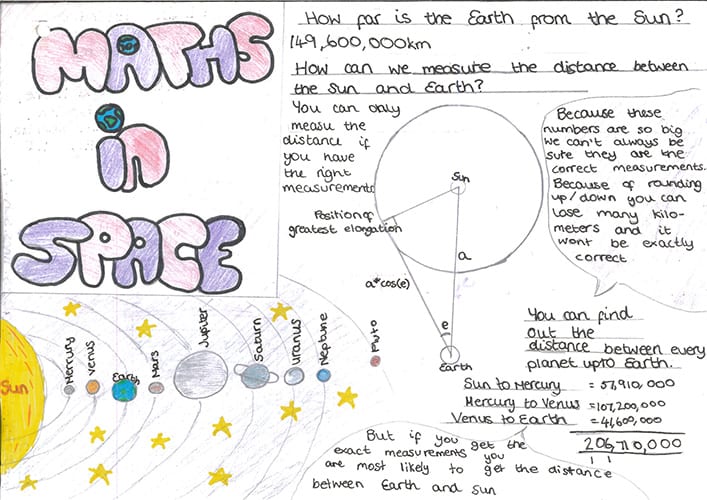 MATHS
in
SPACE
How far is the Earth from the Sun?
149,600,000km
How can we measure the distance between
the Sun and Earth?
You can only
measu the
distance if
you have
the right
measurements
Sun
Position of
greatest elongation
a
a*cos(e)
e
Earth
Because these
numbers are so big
we can't always be
sure they are the
correct measurements.
Because of rounding
up/down you can
lose many kilo-
meters and it
wont be exactly
correct
You can find
out the
distance between every
planet upto Earth.
Sun to Mercury = 57,910,000
Mercury to Venus = 107,200,000
Venus to Earth = 41,600,000
206,710,000
1 1
But if you get the
exact measurements you
are most likely to get the distance
between Earth and Sun
Sun
Mercury
Venus
Earth
Mars
Jupiter
Saturn
Uranus
Neptune
Pluto